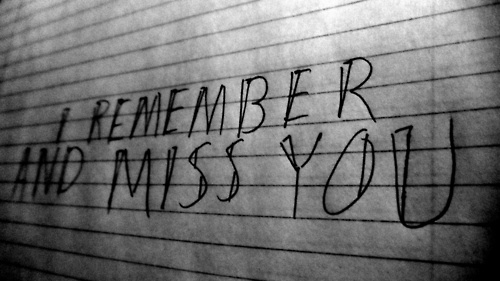 I REMEMBER
AND MISS YOU